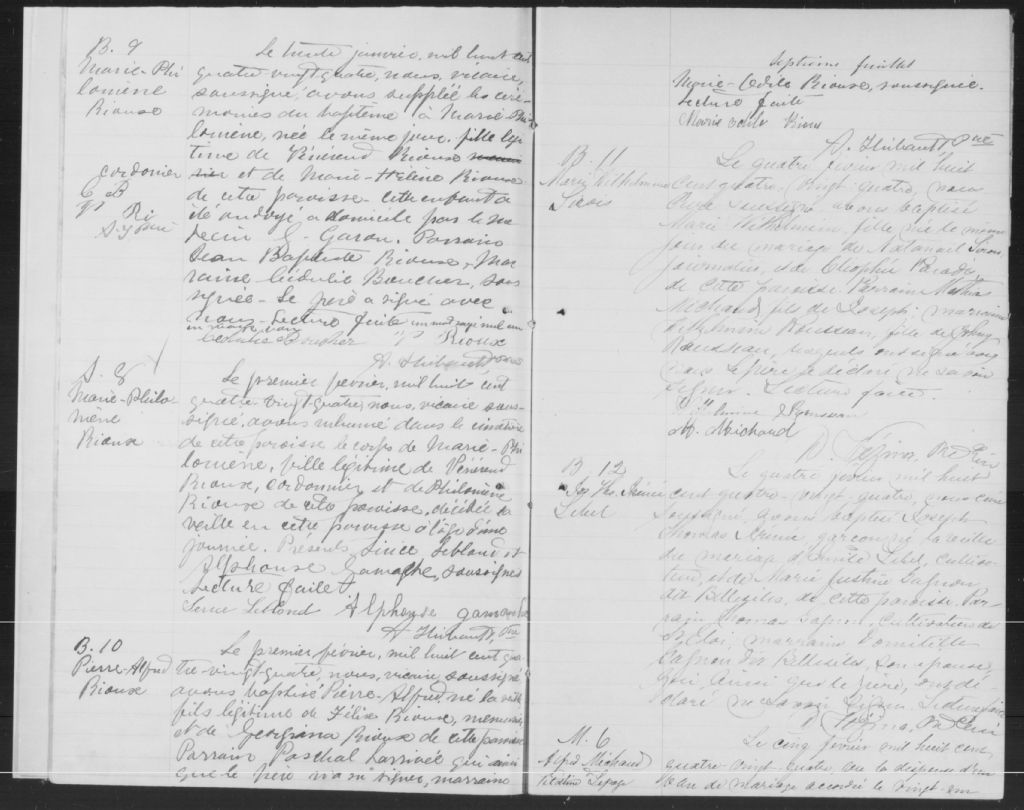 B. 9
Marie-Phi
lomène
Rioux
Le trente janvier, mil huit cent
quatre vingt quatre, nous, vicaire,
soussigné, avons suppléé les céré-
monies du baptême à Marie-Phi
lomène, née le même jour, fille légi
time de Vénérend Rioux
et de Marie-Hélène Rioux
cordonnier
de cette paroisse. Cette enfant a
été ondoyé à domicile par le mé
decin G. Garon. Parrain
Jean Baptiste Rioux, Mar
raine Boucher, sous
signée. Le père a signé avec
nous. Lecture faite un mot rayé nul un
en marge bon
Boucher V. Rioux
A. Thibault
S. 8
Marie-Philo
mène
Rioux
Le premier février, mil huit cent
quatre vingt quatre, nous, vicaire sous-
signé, avons inhumé dans le cimetière
de cette paroisse le corps de Marie-Phi
lomène, fille légitime de Vénérend
Rioux, cordonnier et de Philomène
Rioux de cette paroisse, décédée la
veille en cette paroisse à l'âge d'une
journée. Présents Leblond et
Alphonse Gamache, soussignés
Lecture faite
Leblond Alphonse Gamache
A Thibault, Ptre
B. 10
Pierre-Alfred
Rioux
Le premier février, mil huit cent qua
tre-vingt-quatre, nous, vicaire soussigné
avons baptisé Pierre-Alfred, né la veille
fils légitime de Félix Rioux, menuisier
et de Georgiana Rioux de cette paroisse
Parrain Paschal Larrivée qui ainsi
que le père n'a su signer, marraine
Septième feuillet
Marie-Odile Rioux, soussignée.
Lecture faite
Marie Rioux
A. Thibault Ptre
B. 11
Marie Wilhelmine
Le quatre février mil huit
cent quatre-vingt quatre, nous
Curé soussigné avons baptisé
Marie Wilhelmine, fille née le même
jour du mariage de
journalier, et de Cléophée Paradis
de cette paroisse. Parrain
Michaud, fils de Joseph; marraine
Wilhelmine Rousseau, fille de
Rousseau, lesquels ont signé avec
nous. Le père a déclaré ne savoir
signer. Lecture faite.
M. Michaud
D. Vézina, Ptre Curé
B. 12
Jos. Ths.
Lebel
Le quatre février mil huit
cent quatre-vingt quatre, nous curé
soussigné, avons baptisé Joseph
Thomas garçon né la veille
du mariage d' Lebel, cultiva-
teur, et de Marie Justine Gagnon
dit Bellesiles, de cette paroisse. Par-
rain Thomas Gagnon, cultivateur de
St Eloi; marraine Domitilde
Gagnon dit Bellesiles, son épouse,
qui, ainsi que le père, ont dé-
claré ne savoir signer. Lecture faite
D. Vézina, Ptre Curé
M. 6
Alfred Michaud
Lepage
Le cinq février mil huit cent
quatre-vingt-quatre, vu la dispense d'un
ban de mariage accordée le vingt-un